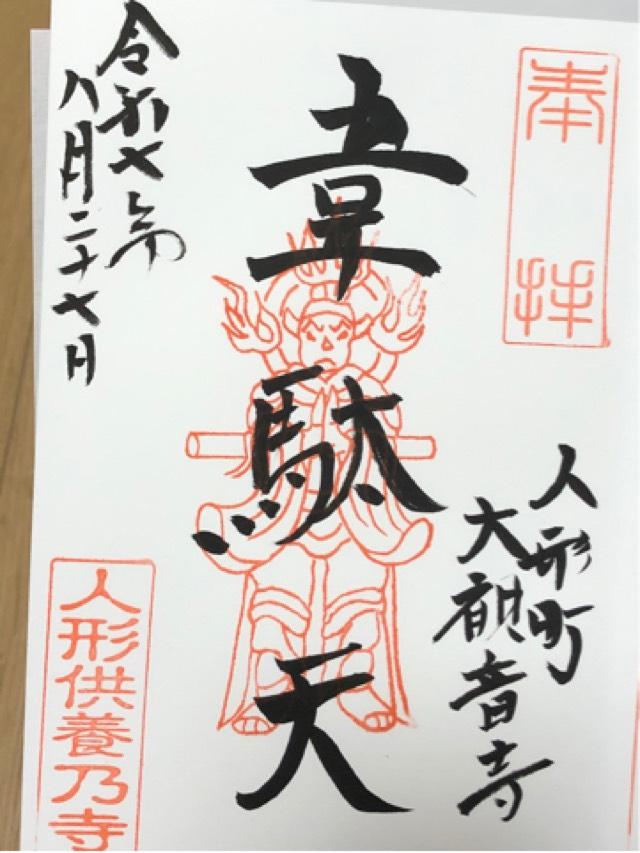 奉拝
韋駄天
人形町
大観音寺
令和七年
八月二十七日
人形供養乃寺